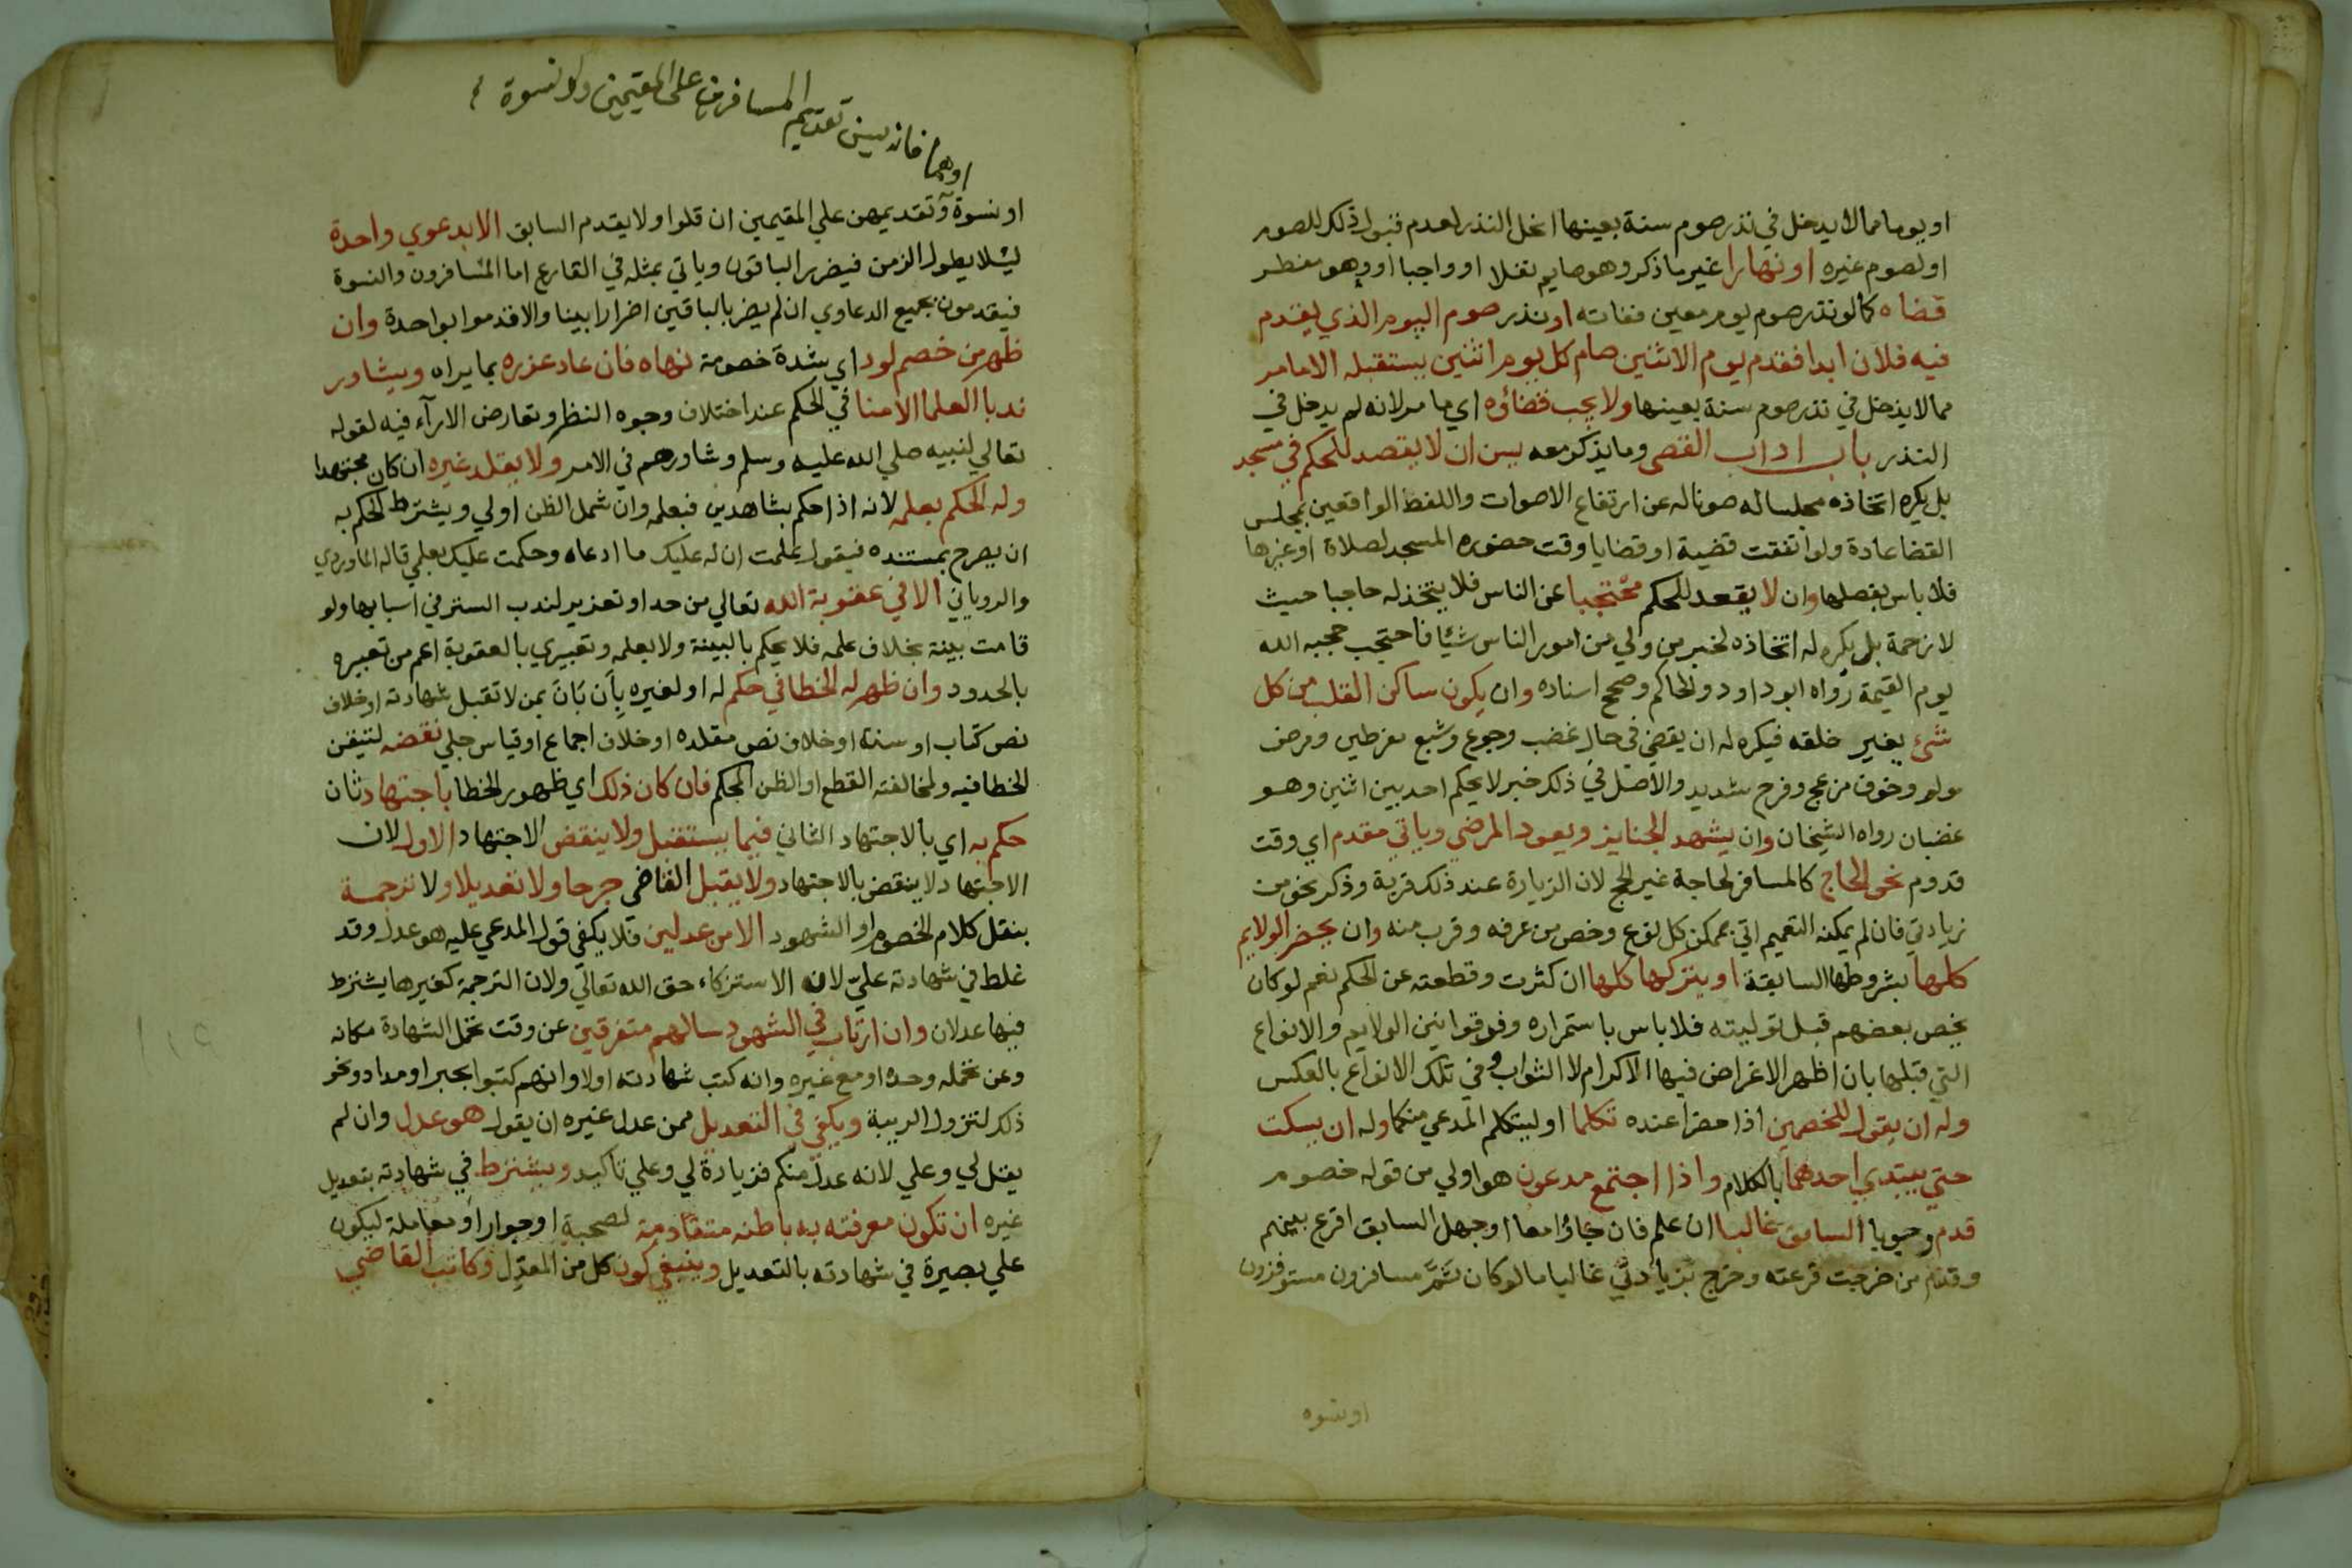 او يوما مما لا يدخل في نذر صوم سنة بعينها انحل النذر لعدم قبول ذلك للصوم
او لصوم غيره او نهارا غير ما ذكر وهو صايم نفلا او واجبا او وهو مفطر
قضاه كما لو نذر صوم يوم معين ففاته او نذر صوم اليوم الذي يقدم
فيه فلان ابدا فقدم يوم الاثنين صام كل يوم اثنين يستقبله الا ما مر
مما لا يدخل في نذر صوم سنة بعينها ولا يجب قضاؤه اي ما مر لانه لم يدخل في
النذر باب اداب القضى وما يذكر معه يسن ان لا يقصد للحكم في مسجد
بل يكره اتخاذه مجلسا له صونا له عن ارتفاع الاصوات واللغط الواقعين بمجلس
القضا عادة ولو اتفقت قضية او قضايا وقت حضوره المسجد لصلاة او غيرها
فلا باس بفصلها وان لا يقعد للحكم محتجبا عن الناس فلا يتخذ له حاجبا حيث
لا زحمة بل يكره له اتخاذه لخبر من ولي من امور الناس شيئا فاحتجب حجبه الله
يوم القيمة رواه ابو داود والحاكم وصحح اسناده وان يكون ساكن القلب من كل
شئ يغير خلقه فيكره له ان يقضي في حال غضب وجوع وشبع مفرطين ومرض
مولم وخوف مزعج وفرح شديد والاصل في ذلك خبر لا يحكم احد بين اثنين وهو
غضبان رواه الشيخان وان يشهد الجنايز ويعود المرضي وياتي مقدم اي وقت
قدوم نحو الحاج كالمسافر لحاجة غير الحج لان الزيارة عند ذلك قربة وذكر نحو من
زيادتي فان لم يمكنه التعميم اتي بممكن كل نوع وخص من عرفه وقرب منه وان يحضر الولايم
كلها بشروطها السابقة او يتركها كلها ان كثرت وقطعته عن الحكم نعم لو كان
يخص بعضهم قبل توليته فلا باس باستمراره وفرقوا بين الولايم والانواع
التي قبلها بان اظهر الاغراض فيها الاكرام لا الثواب وفي تلك الانواع بالعكس
وله ان يقول للخصمين اذا حضرا عنده تكلما او ليتكلم المدعي منكما وله ان يسكت
حتي يبتدي احدهما بالكلام واذا اجتمع مدعون هو اولي من قوله خصوم
قدم وجوبا السابق غالبا ان علم فان جاؤا معا او جهل السابق اقرع بينهم
وقدم من خرجت قرعته وخرج بزيادتي غالبا ما لو كان ثَمَّ مسافرون مستوفزون
او نسوة
اوهما فانه يسن تقديم المسافرين على المقيمين ولو نسوة
او نسوة وتقديمهن علي المقيمين ان قلوا ولا يقدم السابق الا بدعوي واحدة
ليلا يطول الزمن فيضرر الباقون وياتي بمثله في القارع اما المسافرون والنسوة
فيقدمون بجميع الدعاوي ان لم يضر بالباقين اضرارا بينا والا قدموا بواحدة وان
ظهر من خصم لود اي شدة خصومة نهاه فان عاد عزره بما يراه ويشاور
ندبا العلما الامنا في الحكم عند اختلاف وجوه النظر وتعارض الارآء فيه لقوله
تعالي لنبيه صلي الله عليه وسلم وشاورهم في الامر ولا يقلد غيره ان كان مجتهدا
وله الحكم بعلمه لانه اذا حكم بشاهدين فبعلمه وان شمل الظن اولي ويشترط للحكم به
ان يصرح بمستنده فيقول علمت ان له عليك ما ادعاه وحكمت عليك بعلمي قاله الماوردي
والروياني الا في عقوبة الله تعالي من حد او تعزير لندب الستر في اسبابها ولو
قامت بينة بخلاف علمه فلا يحكم بالبينة ولا بعلمه وتعبيري بالعقوبة اعم من تعبيره
بالحدود وان ظهر له الخطا في حكم له او لغيره بِاَن بَانَ بمن لا تقبل شهادته او خلاف
نص كتاب او سنة او خلاف نص مقلده او خلاف اجماع او قياس جلي نقضه لتيقن
الخطا فيه ولمخالفته القطع او الظن المحكم فان كان ذلك اي ظهور الخطا باجتهاد ثان
حكم به اي بالاجتهاد الثاني فيما يستقبل ولا ينقض الاجتهاد الاول لان
الاجتهاد لا ينقض بالاجتهاد ولا يقبل القاضي جرحا ولا تعديلا ولا ترجمة
بنقل كلام الخصوم او الشهود الا من عدلين فلا يكفي قول المدعي عليه هو عدل وقد
غلط في شهادته عليّ لان الاستزكاء حق الله تعالي ولان الترجمة كغيرها يشترط
فيها عدلان وان ارتاب في الشهود سالهم متفرقين عن وقت تحمل الشهادة مكانه
وعن تحمله وحده او مع غيره وانه كتب شهادته اولا وانهم كتبوا بحبر او مداد ونحو
ذلك لتزول الريبة ويكفي في التعديل ممن عدل غيره ان يقول هو عدل وان لم
يقل لي وعلي لانه عدل منكم فزيادة لي وعلي تاكيد ويشترط في شهادته بتعديل
غيره ان تكون معرفته به باطنه متقادمة لصحبة او جوار او معاملة ليكون
علي بصيرة في شهادته بالتعديل وينبغي كون كل من المعدِّل وكاتب القاضي